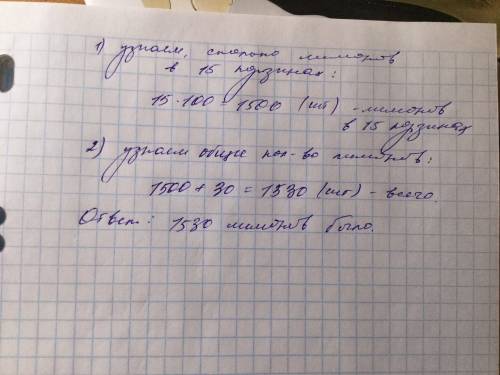 1) узнаем, сколько лимонов
в 15 корзинах:
15·100 = 1500 (шт) - лимонов
в 15 корзинах
2) узнаем общее кол-во лимонов:
1500 + 30 = 1530 (шт) - всего.
Ответ: 1530 лимонов было.